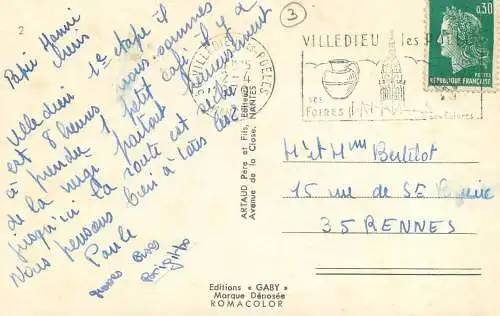 2
3
Papie Mémé
chéris
1e étape il
Villedieu nous sommes
est 8 heures
à prendre 1 petit café il y a
de la neige partout
jusqu'ici la route est
Nous pensons bien à tous les 2
Paule
grosses bises
Brigitte
VILLEDIEU-LES-POELES
VILLEDIEU les P
SES
FOIRES
0,30
POSTES
REPUBLIQUE FRANCAISE
ARTAUD Père et Fils, Editeurs
Avenue de la Close, NANTES
M et Mme Bertelot
15 rue de St
35 RENNES
Editions « GABY »
Marque Déposée
ROMACOLOR